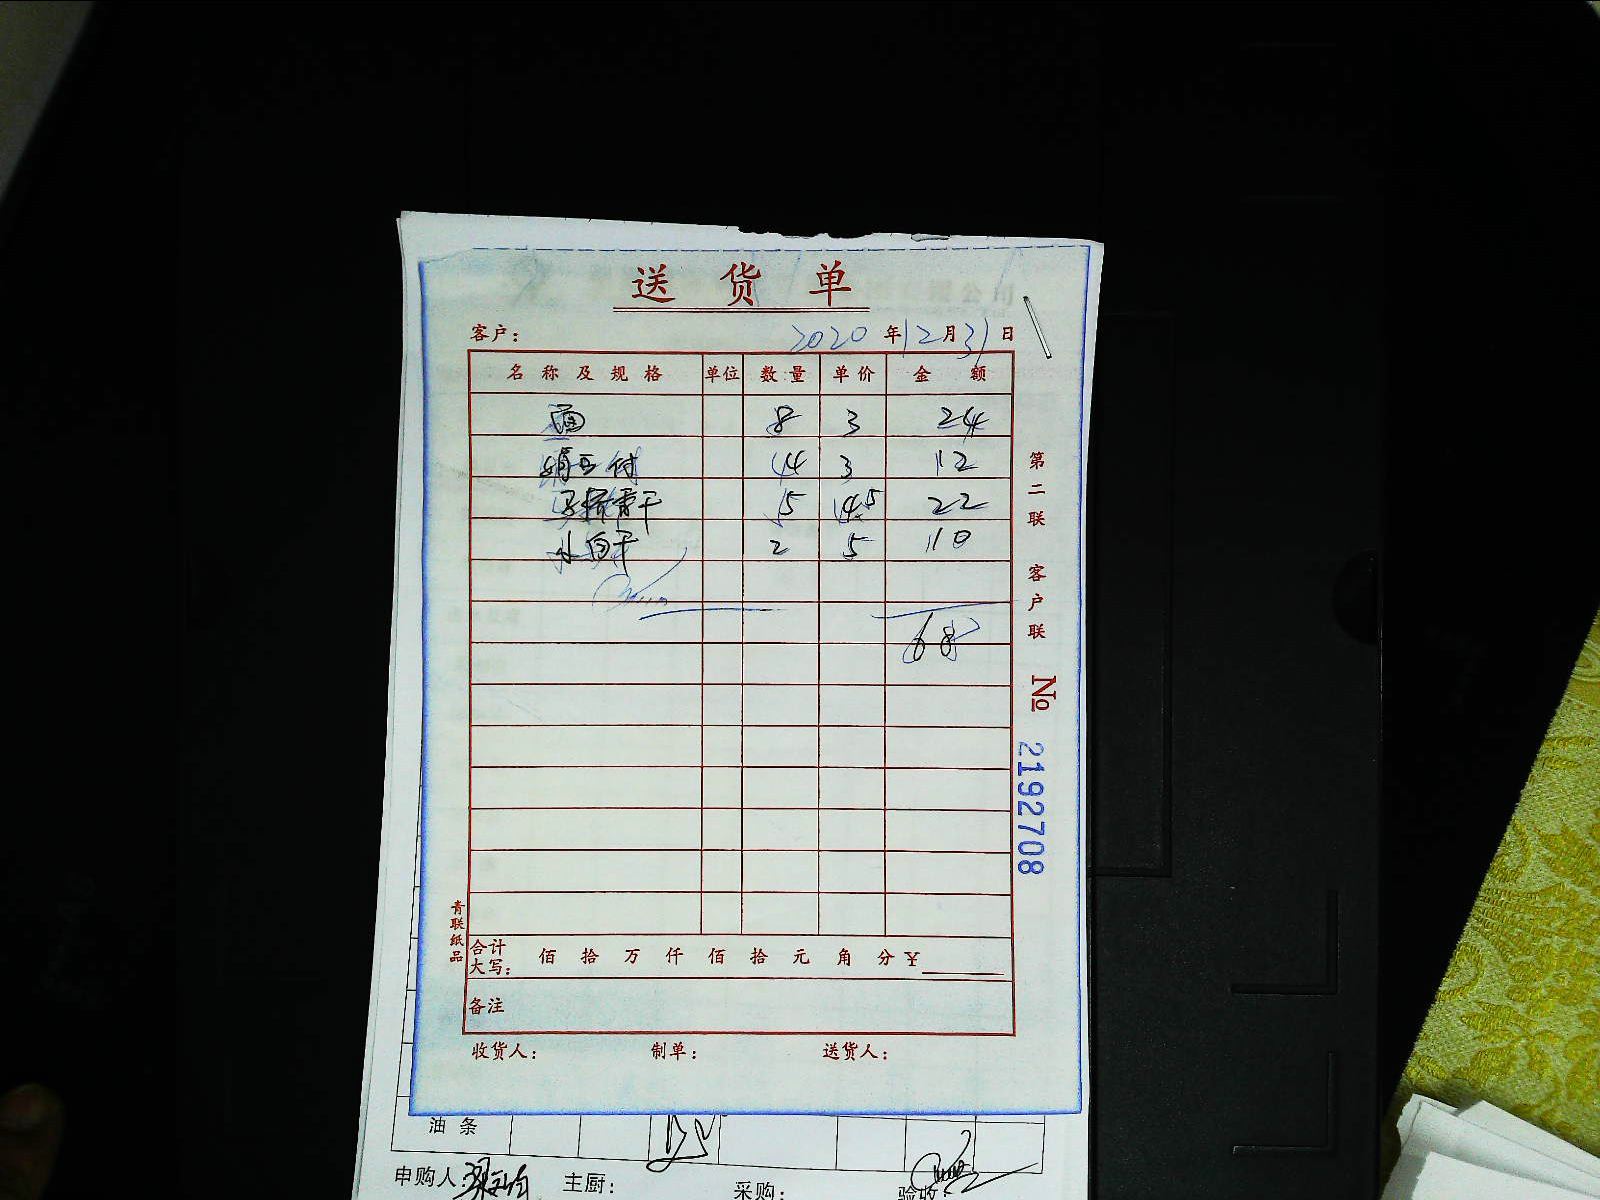 送货单
客户： 2020年12月31日
名称及规格 单位 数量 单价 金额
面 8 3 24
绢豆付 4 3 12
干 5 4.5 22
水白干 2 5 10
68
第二联 客户联
No 2192708
青联纸品
合计大写： 佰 拾 万 仟 佰 拾 元 角 分 ¥
备注
收货人： 制单： 送货人：
油条
申购人： 主厨： 采购： 验收：